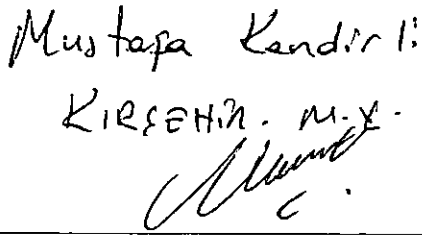 Mustafa Kendirli
KIRŞEHİR. M.V.